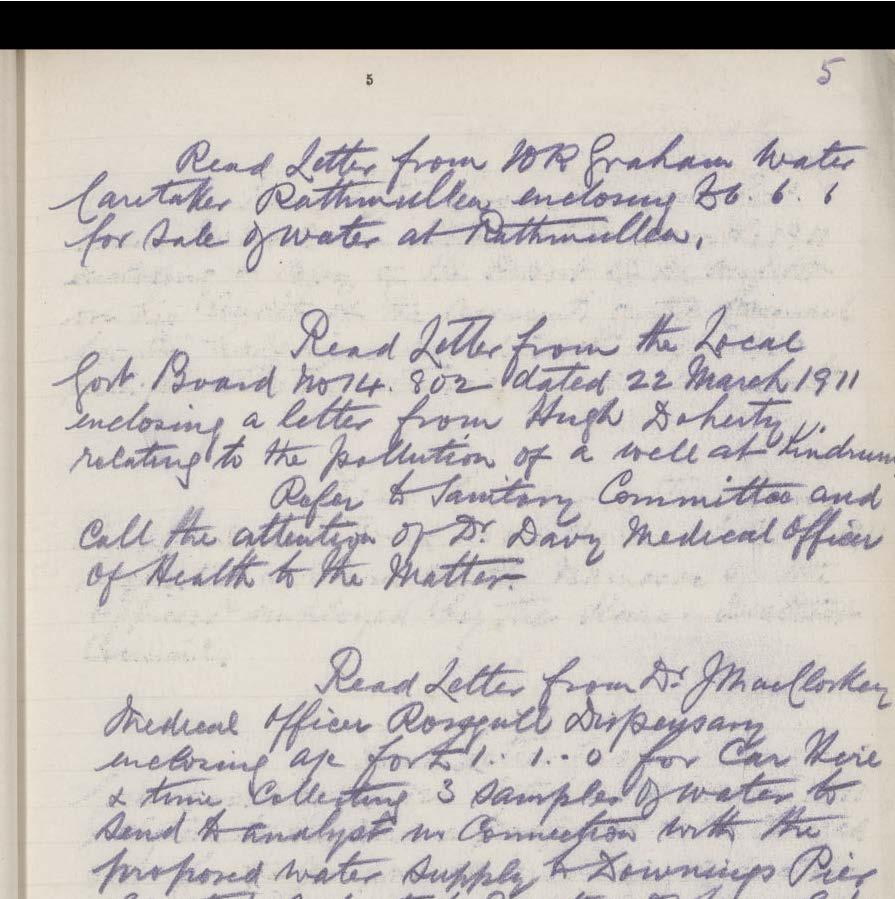 5
5
Read Letter from W R Graham Water
Caretaker Rathmullen enclosing £6. 6. 6
for Sale of water at Rathmullen.
Read Letter from the Local
Govt. Board No 14. 802 dated 22 March 1911
enclosing a letter from Hugh Doherty
relating to the pollution of a well at Kindrum
Refer to Sanitary Committee and
Call the attention of Dr. Davy Medical Officer
of Health to the Matter.
Read Letter from Dr. J MacCloskey
Medical Officer Rosguill Dispensary
enclosing a/c for £1. 1. 0 for Car Hire
& time Collecting 3 Samples of water to
Send to analyst in Connection with the
proposed water supply to Downings Pier